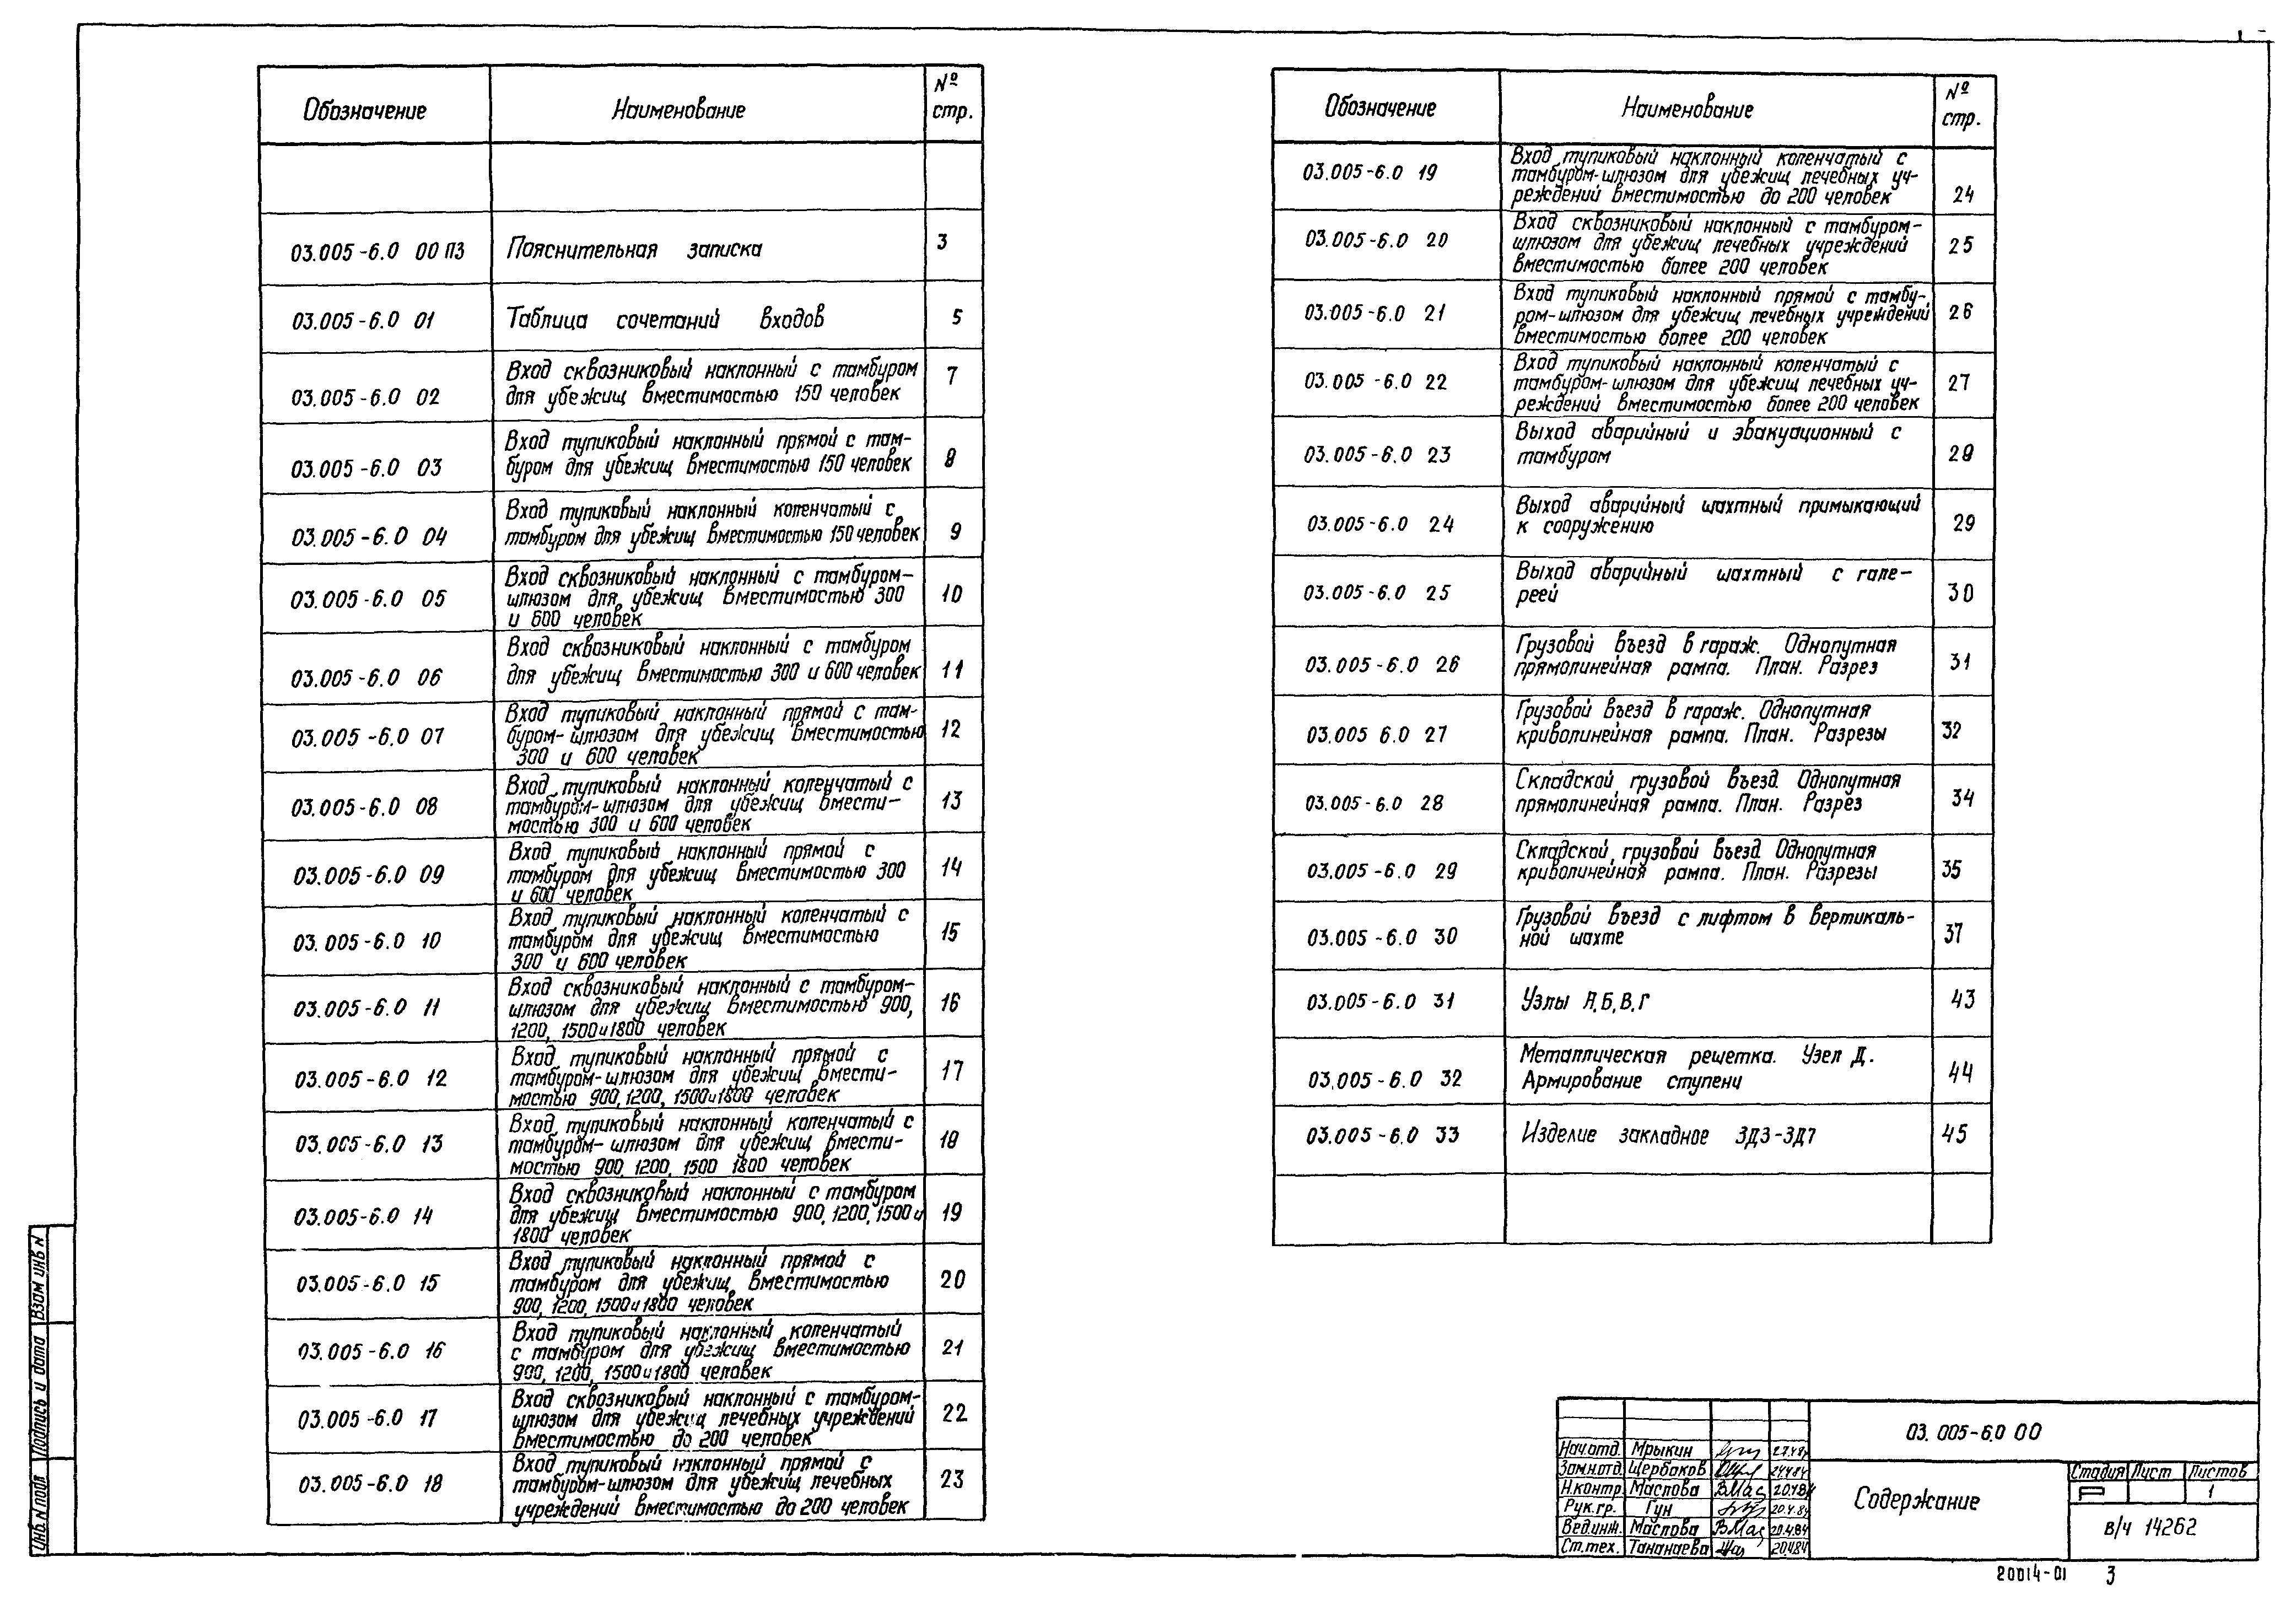 Обозначение
Наименование
№ стр.
03.005-6.0 00 ПЗ
Пояснительная записка
3
03.005-6.0 01
Таблица сочетаний входов
5
03.005-6.0 02
Вход сквозниковый наклонный с тамбуром
для убежищ вместимостью 150 человек
7
03.005-6.0 03
Вход тупиковый наклонный прямой с там-
буром для убежищ вместимостью 150 человек
8
03.005-6.0 04
Вход тупиковый наклонный коленчатый с
тамбуром для убежищ вместимостью 150 человек
9
03.005-6.0 05
Вход сквозниковый наклонный с тамбуром-
шлюзом для убежищ вместимостью 300
и 600 человек
10
03.005-6.0 06
Вход сквозниковый наклонный с тамбуром
для убежищ вместимостью 300 и 600 человек
11
03.005-6.0 07
Вход тупиковый наклонный прямой с там-
буром-шлюзом для убежищ вместимостью
300 и 600 человек
12
03.005-6.0 08
Вход тупиковый наклонный коленчатый с
тамбуром-шлюзом для убежищ вмести-
мостью 300 и 600 человек
13
03.005-6.0 09
Вход тупиковый наклонный прямой с
тамбуром для убежищ вместимостью 300
и 600 человек
14
03.005-6.0 10
Вход тупиковый наклонный коленчатый с
тамбуром для убежищ вместимостью
300 и 600 человек
15
03.005-6.0 11
Вход сквозниковый наклонный с тамбуром-
шлюзом для убежищ вместимостью 900,
1200, 1500 и 1800 человек
16
03.005-6.0 12
Вход тупиковый наклонный прямой с
тамбуром-шлюзом для убежищ вмести-
мостью 900, 1200, 1500 и 1800 человек
17
03.005-6.0 13
Вход тупиковый наклонный коленчатый с
тамбуром-шлюзом для убежищ вмести-
мостью 900, 1200, 1500 1800 человек
18
03.005-6.0 14
Вход сквозниковый наклонный с тамбуром
для убежищ вместимостью 900, 1200, 1500 и
1800 человек
19
03.005-6.0 15
Вход тупиковый наклонный прямой с
тамбуром для убежищ вместимостью
900, 1200, 1500 и 1800 человек
20
03.005-6.0 16
Вход тупиковый наклонный коленчатый
с тамбуром для убежищ вместимостью
900, 1200, 1500 и 1800 человек
21
03.005-6.0 17
Вход сквозниковый наклонный с тамбуром-
шлюзом для убежищ лечебных учреждений
вместимостью до 200 человек
22
03.005-6.0 18
Вход тупиковый наклонный прямой с
тамбуром-шлюзом для убежищ лечебных
учреждений вместимостью до 200 человек
23
Обозначение
Наименование
№ стр.
03.005-6.0 19
Вход тупиковый наклонный коленчатый с
тамбуром-шлюзом для убежищ лечебных уч-
реждений вместимостью до 200 человек
24
03.005-6.0 20
Вход сквозниковый наклонный с тамбуром-
шлюзом для убежищ лечебных учреждений
вместимостью более 200 человек
25
03.005-6.0 21
Вход тупиковый наклонный прямой с тамбу-
ром-шлюзом для убежищ лечебных учреждений
вместимостью более 200 человек
26
03.005-6.0 22
Вход тупиковый наклонный коленчатый с
тамбуром-шлюзом для убежищ лечебных уч-
реждений вместимостью более 200 человек
27
03.005-6.0 23
Выход аварийный и эвакуационный с
тамбуром
28
03.005-6.0 24
Выход аварийный шахтный примыкающий
к сооружению
29
03.005-6.0 25
Выход аварийный шахтный с гале-
реей
30
03.005-6.0 26
Грузовой въезд в гараж. Однопутная
прямолинейная рампа. План. Разрез
31
03.005 6.0 27
Грузовой въезд в гараж. Однопутная
криволинейная рампа. План. Разрезы
32
03.005-6.0 28
Складской грузовой въезд. Однопутная
прямолинейная рампа. План. Разрез
34
03.005-6.0 29
Складской грузовой въезд. Однопутная
криволинейная рампа. План. Разрезы
35
03.005-6.0 30
Грузовой въезд с лифтом в вертикаль-
ной шахте
37
03.005-6.0 31
Узлы А, Б, В, Г
43
03.005-6.0 32
Металлическая решетка. Узел Д.
Армирование ступени
44
03.005-6.0 33
Изделие закладное ЗД3-ЗД7
45
Взам инв N
Подпись и дата
Инв. N подл
Нач.отд. Мрыкин
Зам.н.отд. Щербаков 24.4.84
Н.контр. Маслова ВМас 20.4.84
Рук.гр. Гун 20.4.84
Вед.инж. Маслова ВМас 20.4.84
Ст.тех. Тананаева 20.4.84
03.005-6.0 00
Содержание
Стадия Лист Листов
Р 1
в/ч 14262
20014-01 3